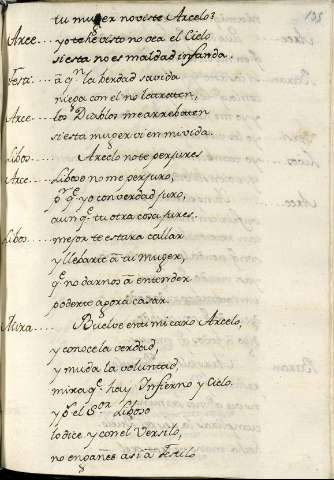 105
tu muger no viste Arcelo?
Arce.... yo te he visto no vea el Cielo
si esta no es maldad infanda.
Testi.... â qn. la berdad savida
niega con el no
Arce.... los Diablos me arrebaten
si esta muger vi en mi vida.
Libos.... Arcelo no te perjures
Arce.... Liboso no me perjuro,
pr. qe. yo con verdad juro,
aun qe. tu otra cosa jures.
Libos.... mejor te estara callar
y llebarte â tu muger,
qe. no darnos â entender
poderte agora casar.
Buelve en ti mi caro Arcelo,
y conoce la verdad,
y muda la voluntad,
mira qe. hay Infierno y Cielo.
y pr. el Sor. Liboso
lo dice y con el Versilo,
no engañes asi â Testilo